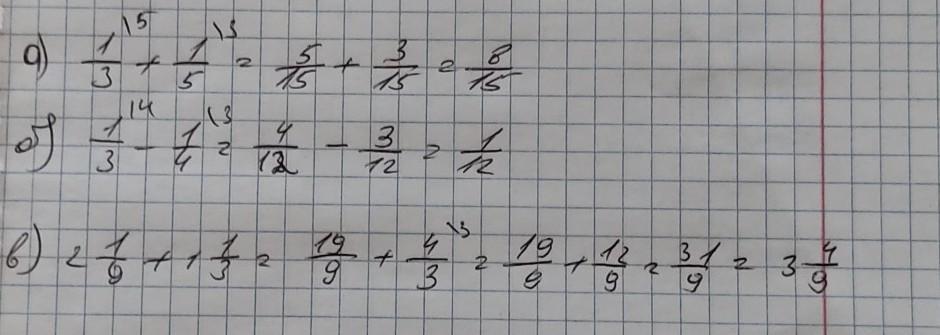 а) 1/3 \5 + 1/5 \3 = 5/15 + 3/15 = 8/15
б) 1/3 \4 - 1/4 \3 = 4/12 - 3/12 = 1/12
в) 2 1/9 + 1 1/3 = 19/9 + 4/3 \3 = 19/9 + 12/9 = 31/9 = 3 4/9